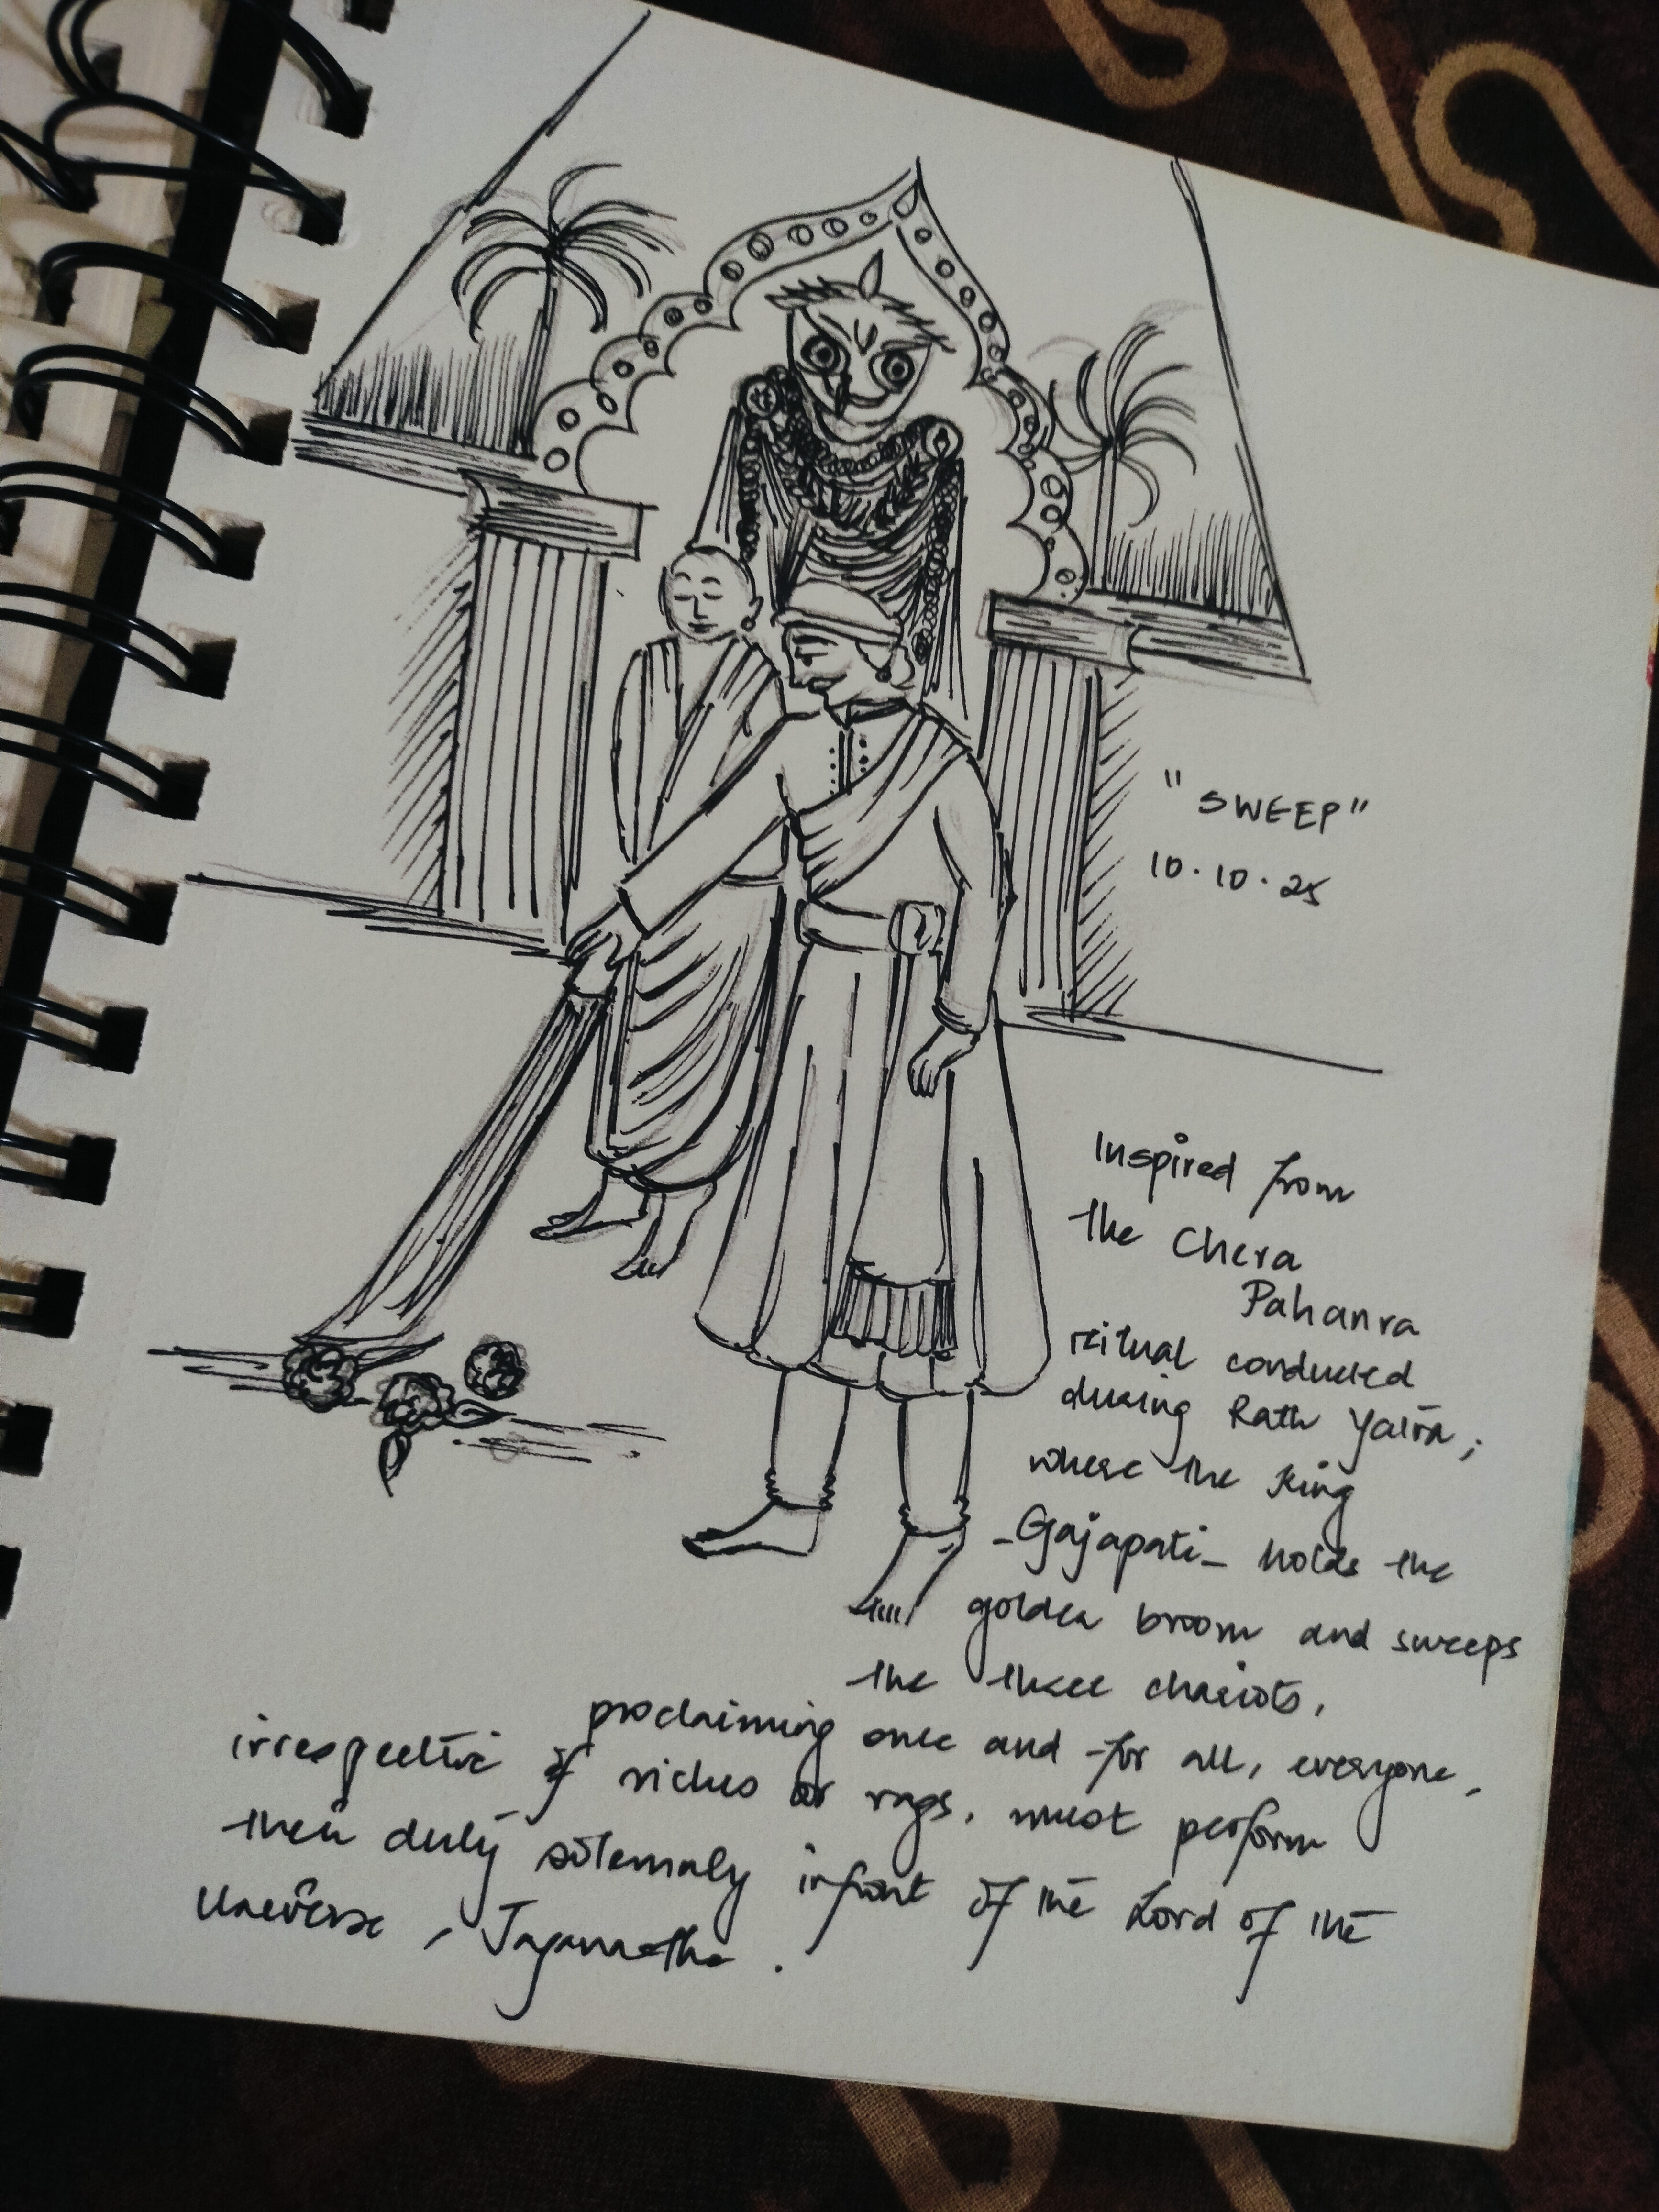 "SWEEP"
10.10.25
Inspired from
the Chera
Pahanra
ritual conducted
during Rath Yatra;
where the King
-Gajapati- holds the
golden broom and sweeps
the three chariots,
proclaiming once and for all, everyone,
irrespective of riches or rags, must perform
their duty solemnly infront of the Lord of the
Universe, Jagannatha.